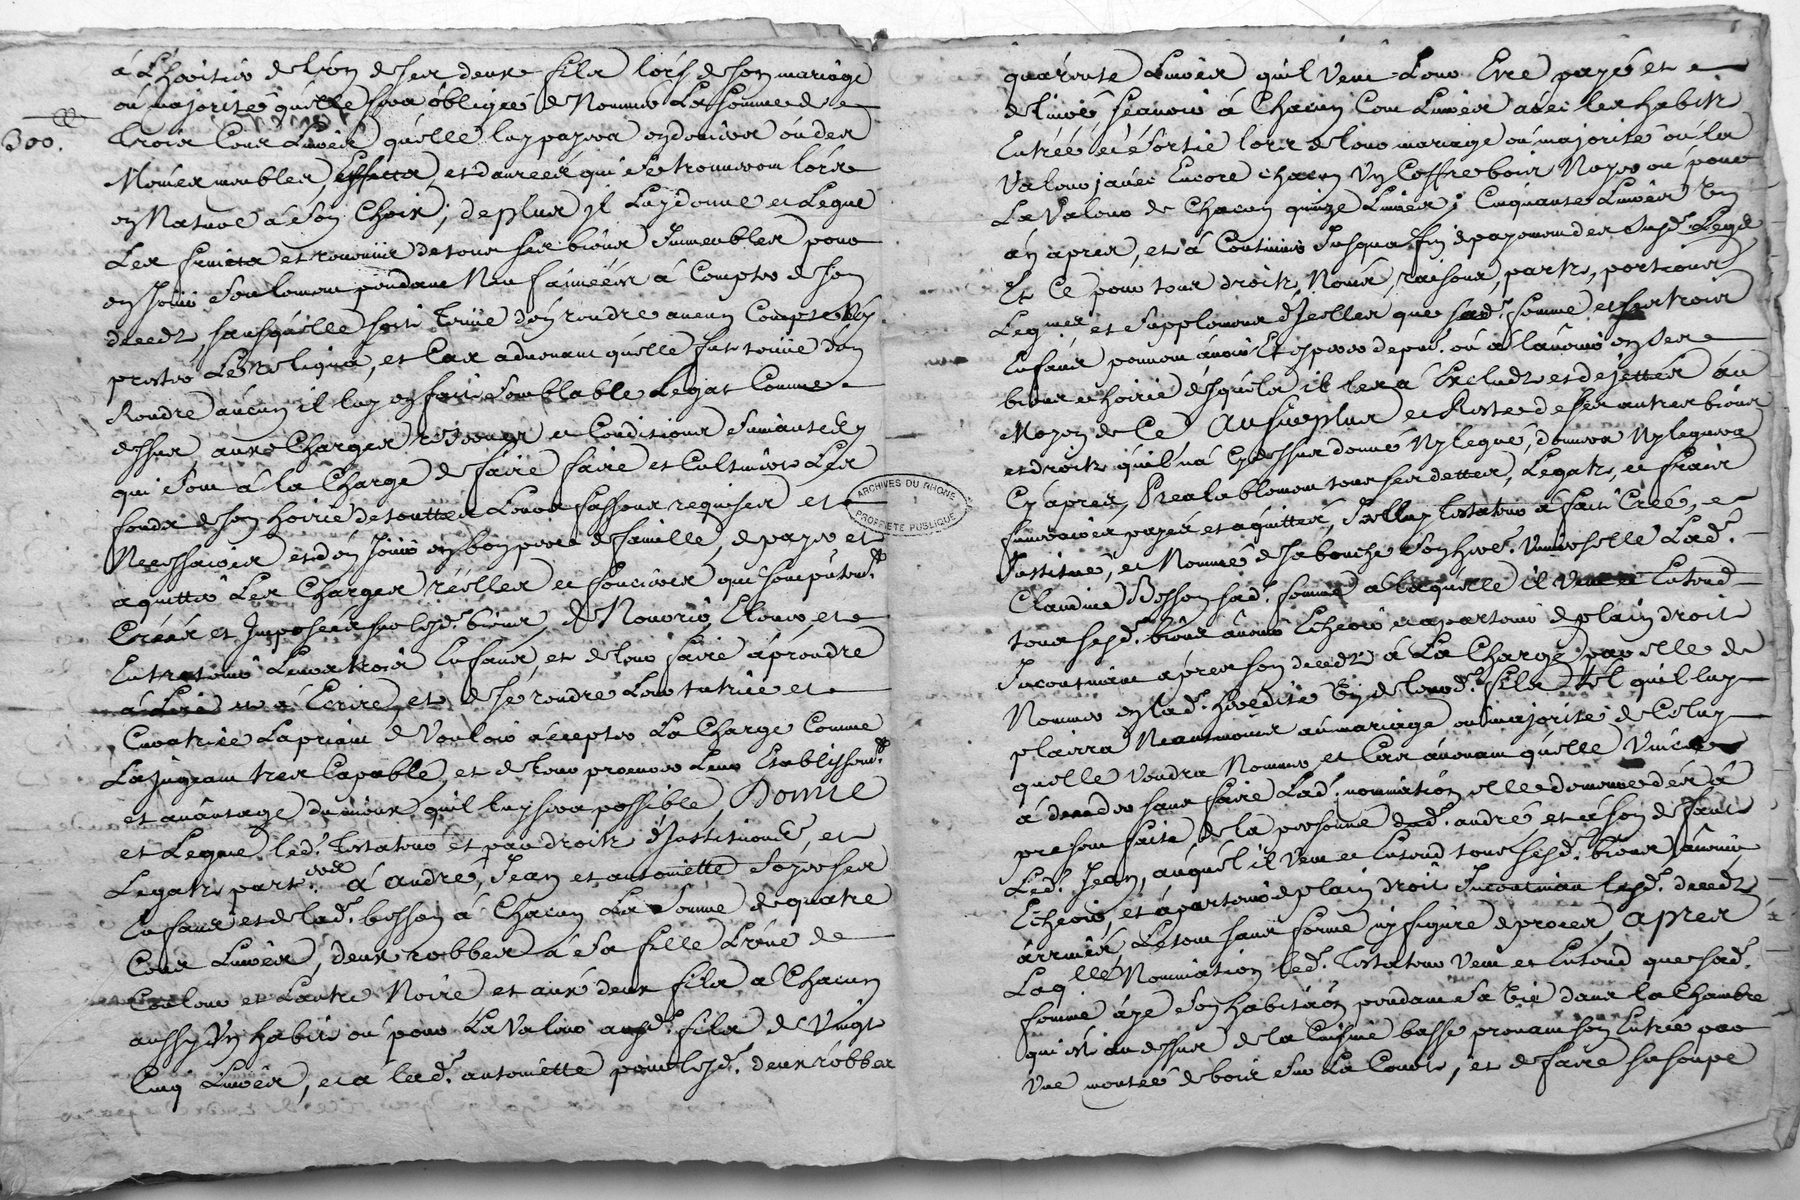 à L'heritier de l'un de ses deux fils lors de son mariage
ou majorité qu'elle sera obligée de Nommer La somme de
300.
trois Cens Livres qu'elle luy payera en deniers ou des
Mêmes meubles, effetts, et danrées qui se trouveront lors
en Nature à son Choix; de plus il Luy donne et Legue
Les fruicts et revenus de tous ses biens Immeubles pour
en Jouir seulement pendant Neuf années à Compter de son
deceds, sans qu'elle soit tenüe d'en rendre aucun Compte ny
prester Le Reliqua, et Cas advenant qu'elle fut tenüe d'en
Rendre aucun il luy en fait semblable Legat Comme
dessus, aux Charges et Conditions suivantes
qui sont à la Charge de faire faire et Cultiver Les
fonds de son hoirie de touttes Leurs fassons requises et
Necessaires et d'en Jouir en bon pere de famille, de payer et
aquitter Les Charges réelles et foncieres qui sont
Créées et Imposées sur lesd. biens, de Nourrir, Elever, et
Entretenir Leurs trois Enfans, et de leur faire aprendre
à Lire et à Ecrire, et de se rendre Leur tutrice et
Curatrice La priant de Vouloir accepter La Charge Comme
La Jugeant tres Capable, et de leur procurer Leur Establissem.t
et avantage du mieux qu'il luy sera possible, Donne
et Legue led. Testateur et par droit d'Institution, et
Legats part.ers à André, Jean et antoinette
Enfans et de lad. besson à Chacun La Somme de quatre
Cens Livres, deux robbes à Sa fille L'une de
Couleur et L'autre Noire et aux deux fils a Chacun
aussy Un habit ou pour La Valeur ausd. fils de Vingt
Cinq Livres, et a lad. antoinette pour lesd. deux robbes
quarente Livres qu'il Veut Leur Etre payés et
delivrés sçavoir à Chacun Cent Livres avec les habits
Entrée et Sortie lors de leur mariage ou majorité ou la
Valeur, avec Encore chacun Un Coffre bois Noyer ou pour
La Valeur de Chacun quinze Livres; Cinquante Livres Un
an apres, et à Continuer Jusqua fin de payement des susd. Legs
Et Ce pour tous droits, Noms, raisons, parts, portions
Legitimes et supplement d'Icelles que sad. femme et ses trois
Enfans peuvent avoir et esperer à present ou à l'avenir en ses
biens et hoirie desquels il les a Exclus et dejettés au
Moyen de Ce Au surplus et Reste de ses autres biens
et droits qu'il n'a Cy dessus donné Ny legué, donnera Ny leguera
Cy apres, Prealablement tous ses dettes, Legats, et frais
funeraires payés et aquittés, Icelluy Testateur a fait Creé, et
Institué, et Nommé de sa bouche son here. Universelle Lad.
Claudine Besson sad. femme a laquelle il Veut et Entend
tous sesd. biens avenir Echeoir et apartenir de plain droit
Incontinant apres son deceds à La Charge par elle de
Nommer en sad. heredité Un de leursd. fils tel qu'il luy
plairra Neantmoins au mariage ou majorité de Celuy
quelle Voudra Nommer et Cas avenant qu'elle Vint
à deceder sans faire Lad. nomination elle demeure dés à
present faite, de la personne dud. andré et à son deffaut
Led. Jean, auquel il Veut et Entend tous sesd. biens avenir
Echeoir, et apartenir de plain droit Incontinant lesd. deceds
arrivés, Le tout sans forme ny figure de procés, Apres
Laq.lle Nomination led. Testateur Veut et Entend que sad.
femme aye son habitation pendant sa Vie dans la Chambre
qui est au dessus de la Cuisine basse prenant son Entrée par
Une montée de bois sur La Cour, et de faire sa soupe
ARCHIVES DU RHONE
PROPRIETE PUBLIQUE